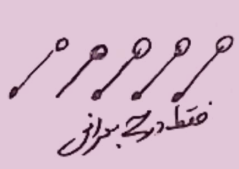 فقط درجه بحرانی